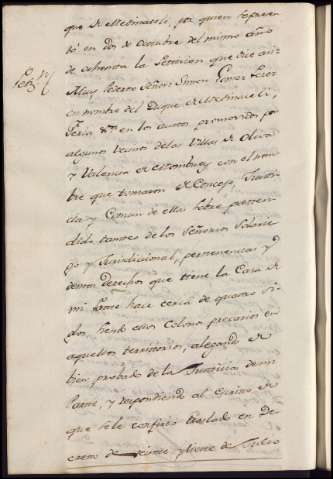 que de Medinaceli, por quien se presen
tó en dos de Octubre del mismo año
de ochenta la Peticion que dice así
Petⁿ/
Muy Poderoso Señor: Simon Gomez Perez
en nombre del Duque de Medinaceli,
Feria &ᵃ en los autos promovidos por
algunos vecinos de las Villas de Oliva
y Valencia de Mombuey con el nom
bre que tomaron de Concejo, Justi
cia, y Comun de ellas sobre preten
didos tanteos de los Señorios Solarie
go y Jurisdicional, pertenencias y
demas derechos que tiene la Casa de
mi Parte hace cerca de quatro Si
glos siendo ellos Colonos precarios en
aquellos territorios, alegando de
bien probado de la Justicia de mi
Parte, y respondiendo al Escrito de
que se le confirio traslado en De
creto de veinte y nueve de Julio